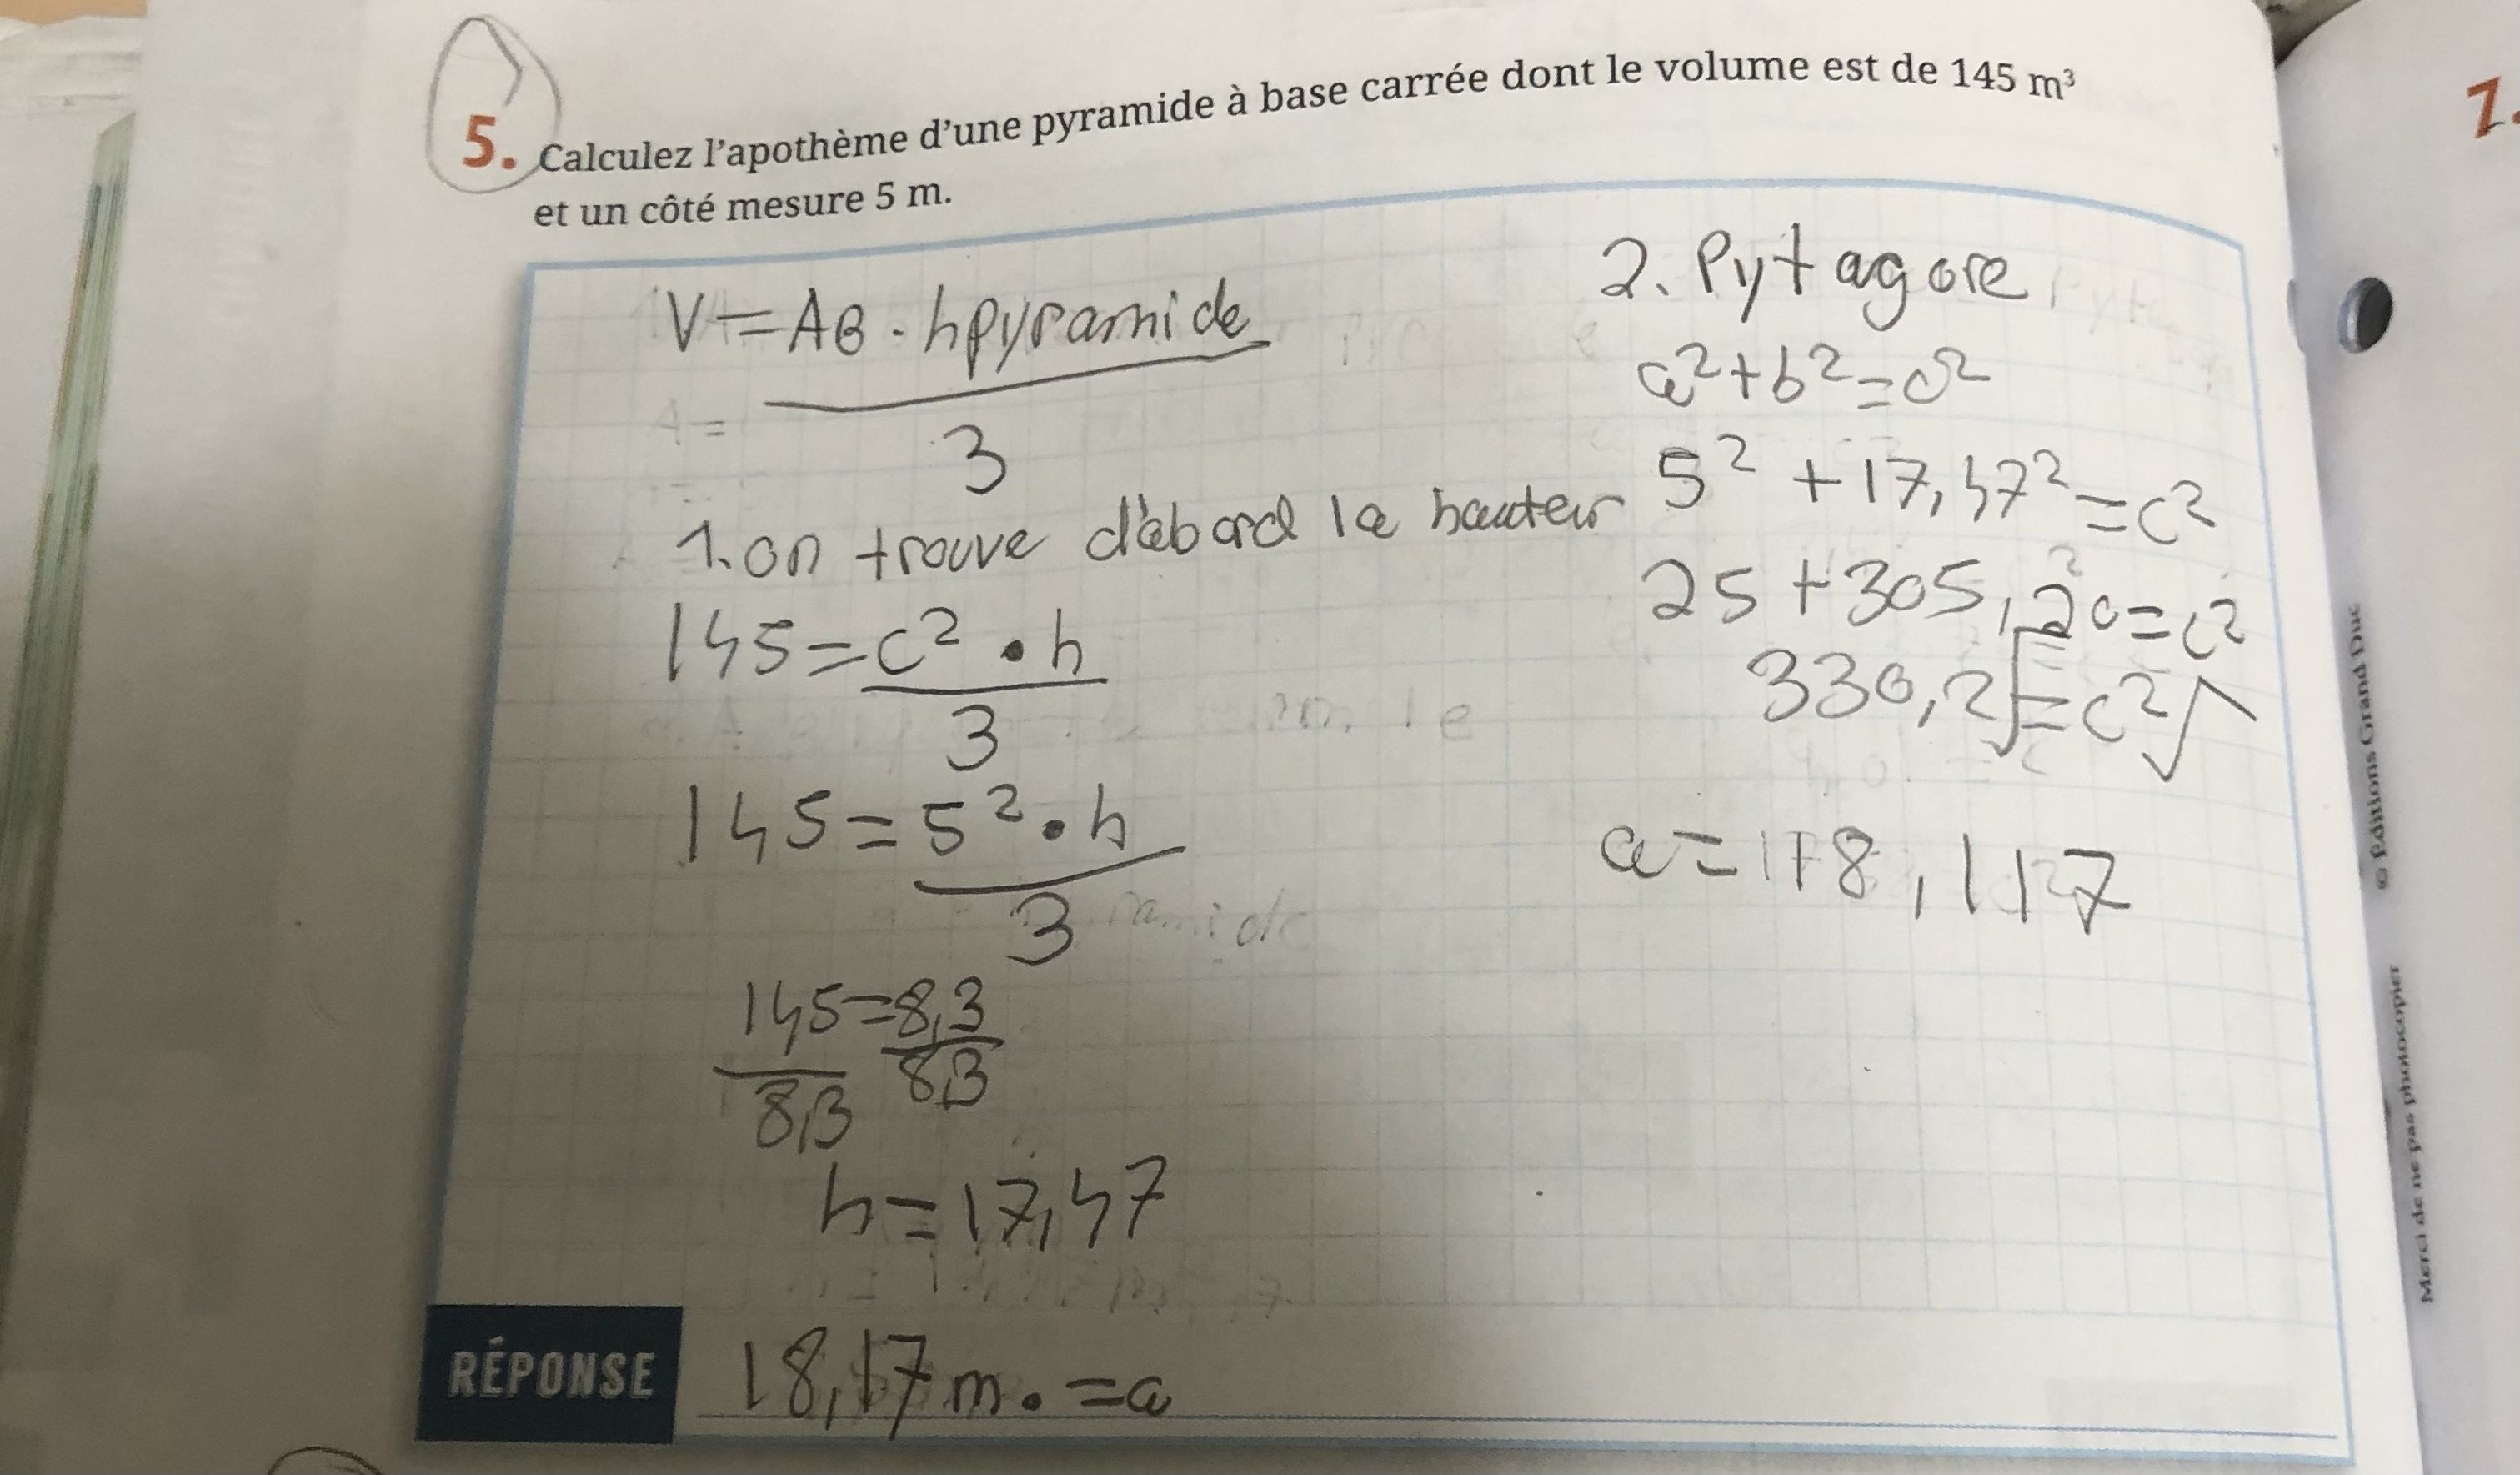 5. Calculez l'apothème d'une pyramide à base carrée dont le volume est de 145 m³
et un côté mesure 5 m.
V = AB · hpyramide
3
1. on trouve d'abord la hauteur
145 = c² · h
3
145 = 5² · h
3
145 = 8,3
8,3 8,3
h = 17,47
2. Pytagore
a² + b² = c²
5² + 17,47² = c²
25 + 305,20 = c²
√330,2 = √c²
a = 18,17
RÉPONSE
18,17 m. = a
© Éditions Grand Duc
Merci de ne pas photocopier
7.